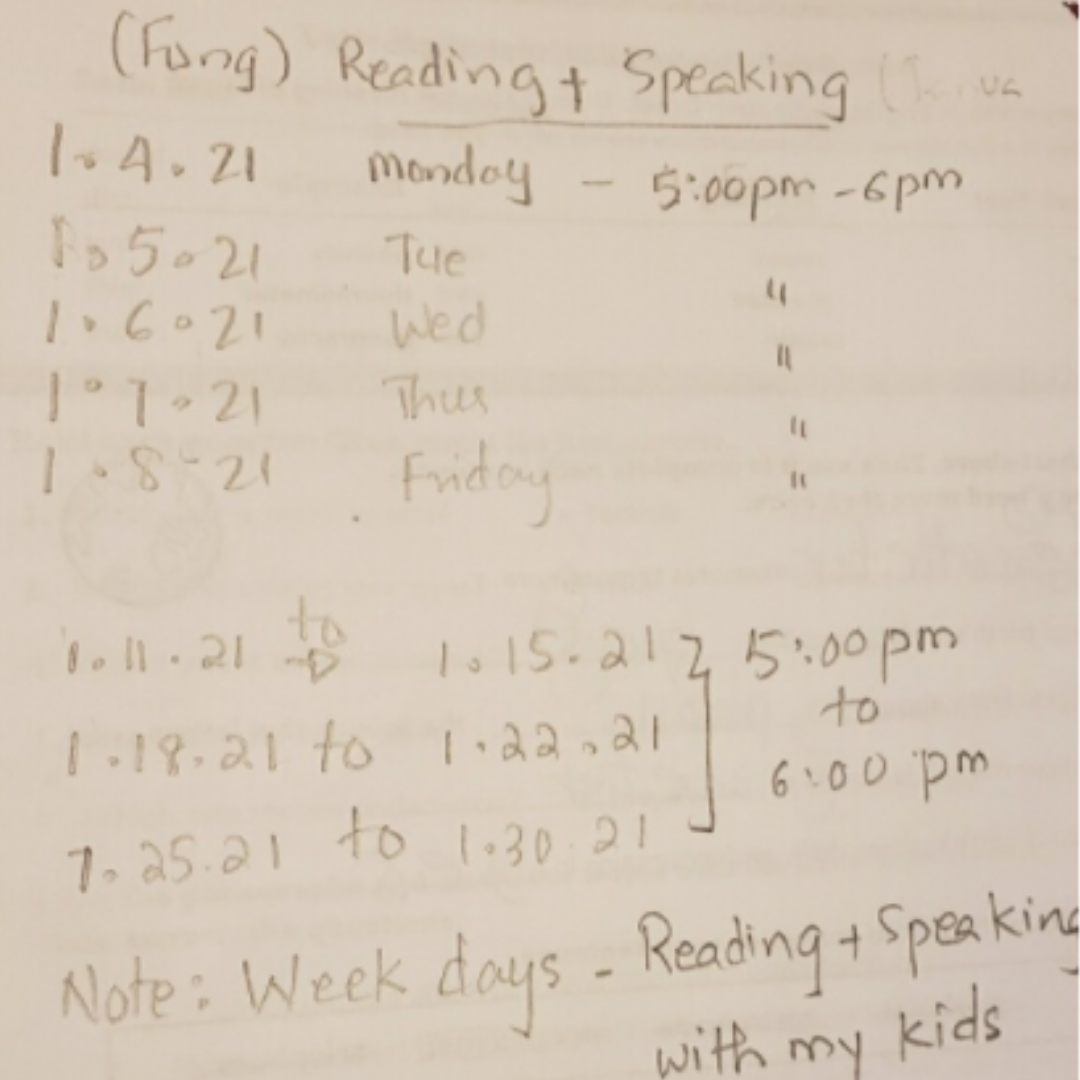 (Fung) Reading + Speaking
1.4.21 Monday - 5:00pm - 6pm
1.5.21 Tue "
1.6.21 Wed "
1.7.21 Thus "
1.8-21 Friday "
1.11.21 to → 1.15.21 } 5:00pm
1.18.21 to 1.22.21 to
1.25.21 to 1.30.21 6:00 pm
Note: Week days - Reading + Speaking
with my kids